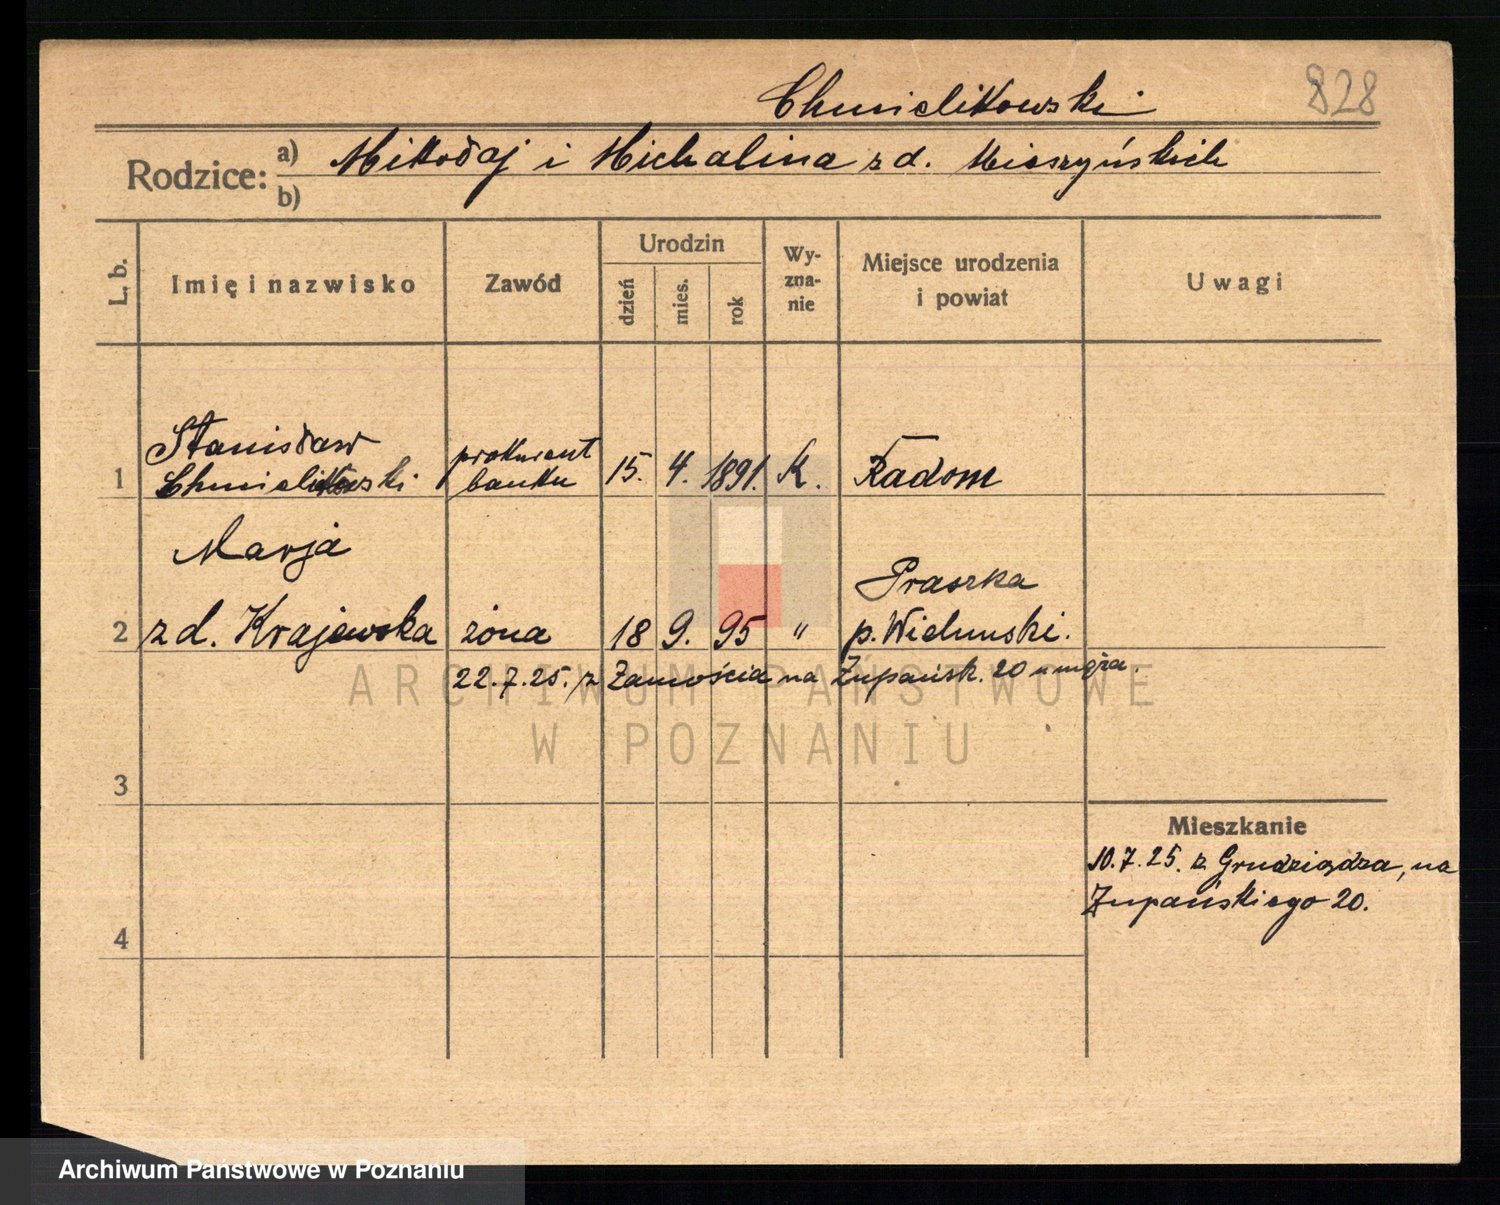 828
Chmielikowski
Rodzice: a) Mikołaj i Michalina z d. Mieszyńskich
b)
L. b.
Imię i nazwisko
Zawód
Urodzin
dzień
mies.
rok
Wy-
zna-
nie
Miejsce urodzenia
i powiat
Uwagi
Stanisław
1 Chmielikowski
prokurent
banku
15. 4. 1891. K. Radom
Marja
Praszka
2 z d. Krajewska żona 18 9. 95 " p. Wieluński.
22.7.25. z Zamościa na Żupańsk. 20 u męża.
ARCHIWUM PAŃSTWOWE
W POZNANIU
3
Mieszkanie
10.7.25. z Grudziądza, na
Żupańskiego 20.
4
Archiwum Państwowe w Poznaniu